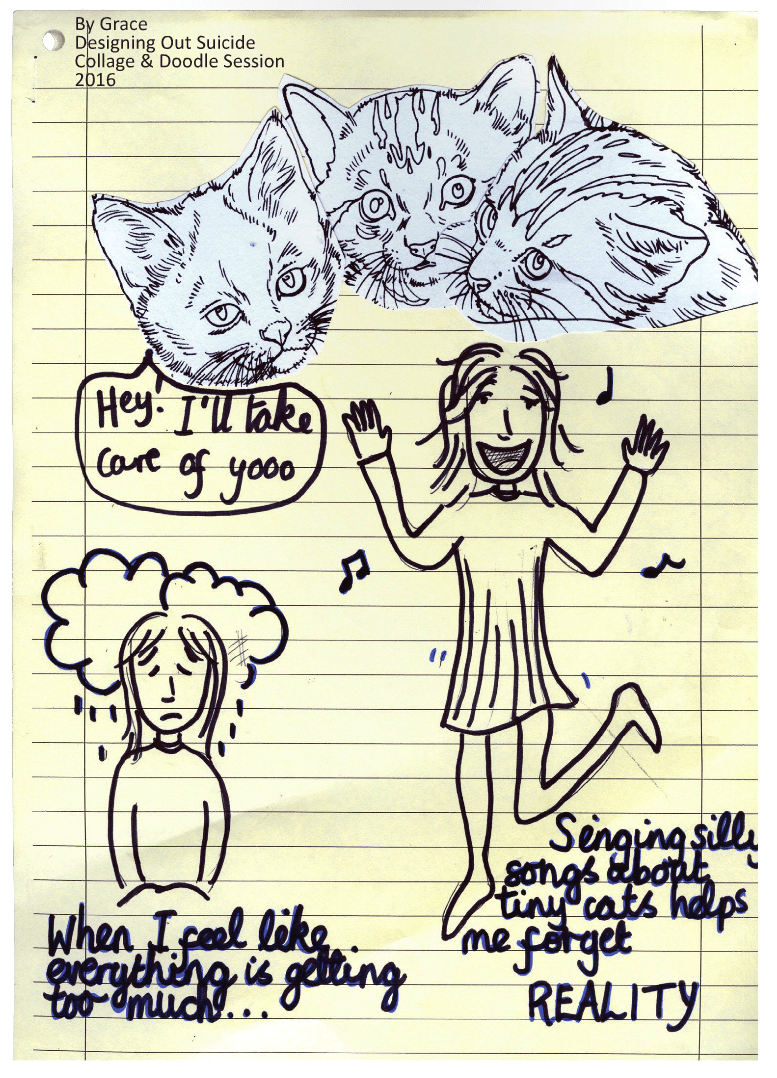 By Grace
Designing Out Suicide
Collage & Doodle Session
2016
Hey! I'll take
care of yooo
When I feel like
everything is getting
too much...
Senging silly
songs about
tiny cats helps
me forget
REALITY